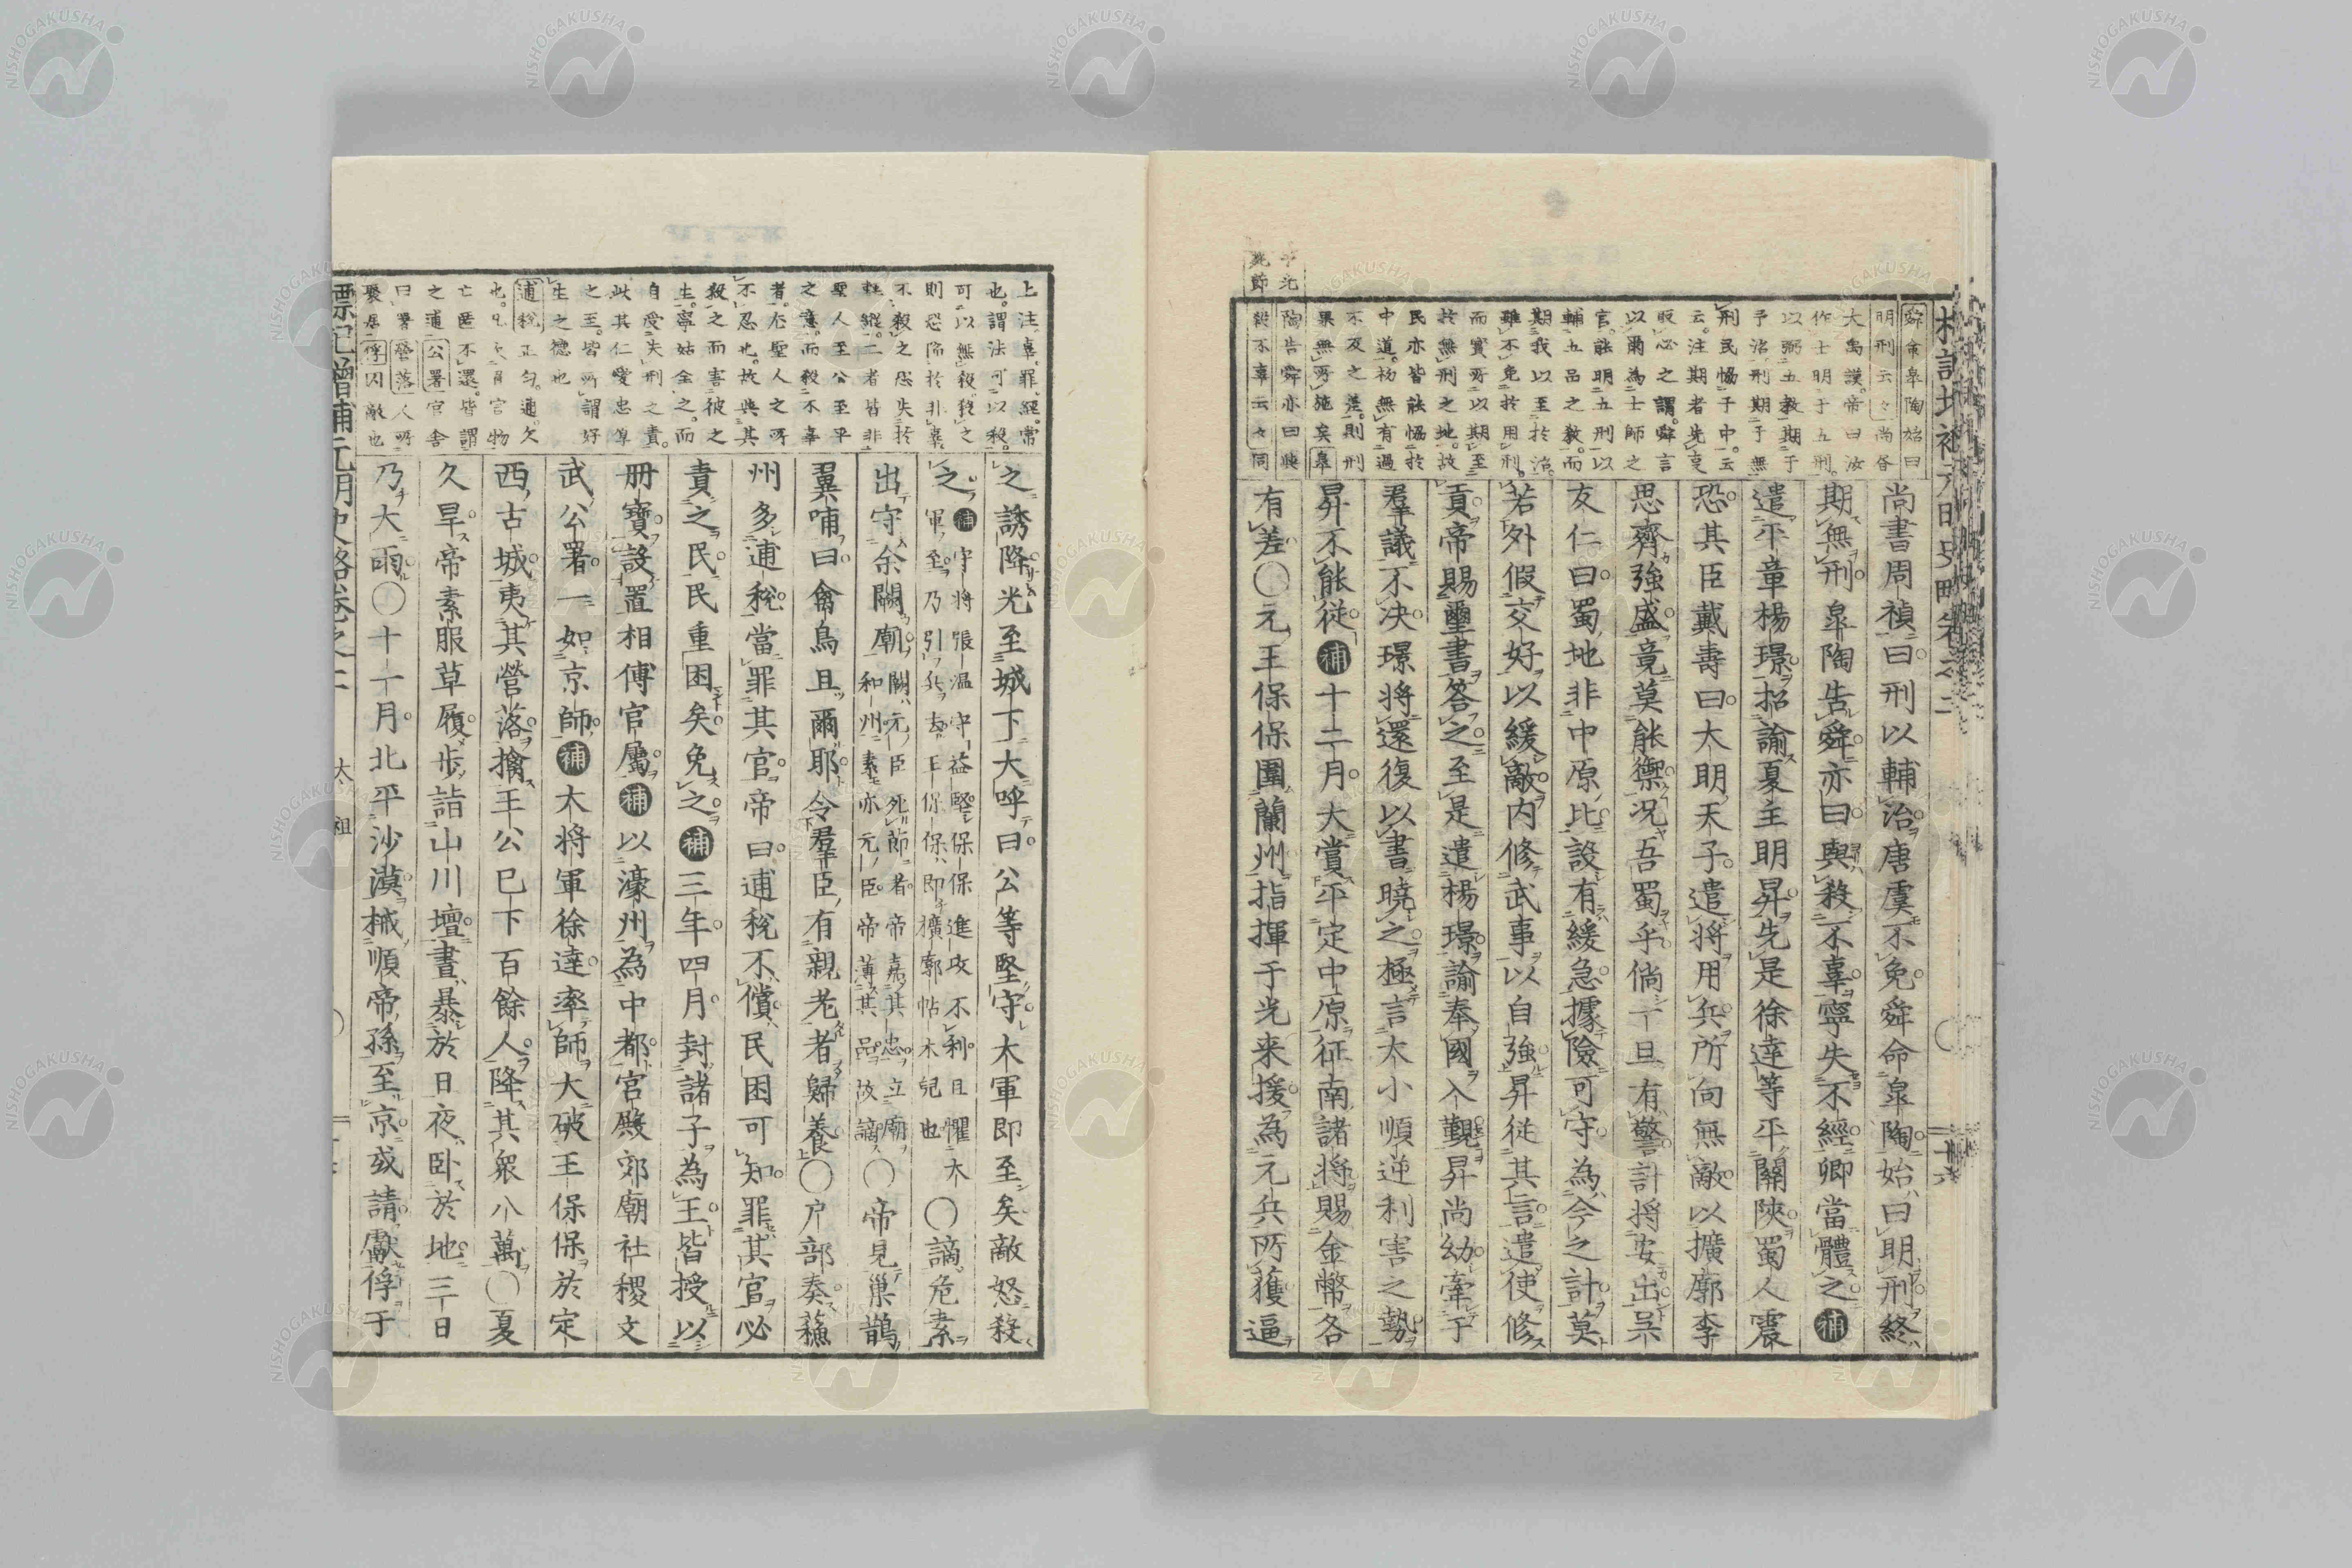 尚書周禎曰刑以輔治唐虞不免舜命皐陶始曰明刑終
期無刑皐陶告舜亦曰與殺不辜寧失不經卿當體之補
遣平章楊璟招諭夏主明昇先是徐達等平關陝蜀人震
恐其臣戴壽曰大明天子遣將用兵所向無敵以擴廓李
思齊強盛竟莫能禦况吾蜀乎倘一旦有警計將安出呉
友仁曰蜀地非中原比設有緩急據險可守為今之計莫
若外假交好以緩敵内修武事以自強昇従其言遣使修
貢帝賜璽書答之至是遣楊璟諭奉國入覲昇尚幼牽于
羣議不决璟將還復以書曉之極言大小順逆利害之勢
昇不能従補十二月大賞平定中原征南諸將賜金幣各
有差〇元王保保圍蘭州指揮于光来援為元兵所獲逼
舜命皐陶始曰
明刑云々尚各
大禹謨帝曰汝
作士明于五刑
以弼五教期于
予治刑期于無
刑民恊于中云
云注期者先𡨋
以爾為士師之
官能明五刑以
輔五品之教而
期我以至於治
雖不免於用刑
而實所以期至
於無刑之地故
民亦皆能恊於
中道初無有過
不及之差則刑
果無所施矣皐
陶告舜亦曰與
殺不辜云々同
于光
死節
之誘降光至城下大呼曰公等堅守大軍即至矣敵怒殺
之補守將張温守益堅保保進攻不利且懼大
軍至乃引兵去王保保即擴廓帖木兒也〇謫危素
出守余闕廟闕元臣死節者帝嘉其忠立廟
和州素亦元臣帝薄其品故謫〇帝見巢鵲
翼哺曰禽鳥且爾耶令羣臣有親老者歸養〇户部奏蘓
州多逋税當罪其官帝曰逋税不償民困可知罪其官必
責之民民重困矣免之補三年四月封諸子為王皆授以
册寶設置相傅官屬補以濠州為中都宮殿郊廟社稷文
武公署一如京師補大將軍徐達率師大破王保保於定
西古城夷其營落擒王公已下百餘人降其衆八萬〇夏
久旱帝素服草履歩詣山川壇晝暴於日夜卧於地三日
乃大雨〇十一月北平沙漠械順帝孫至京或請獻俘于
上注辜罪經常
也謂法可以殺
可以無殺殺之
則恐陥於非辜
不殺之恐失於
輕縱二者皆非
聖人至公至平
之意而殺不辜
者尤聖人之所
不忍也故與其
殺之而害彼之
生寧姑全之而
自受失刑之責
此其仁愛忠厚
之至皆所謂好
生之德也
逋税正勻逋欠
亡匿不還皆謂
之逋公署官舎
曰署營落人所
聚居俘囚敵也